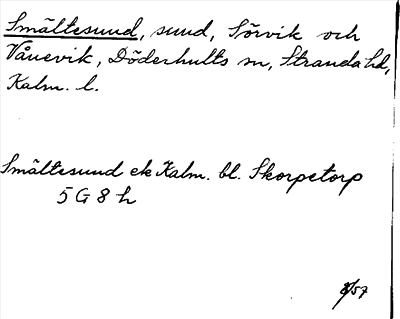 Smältesund, sund, Sörvik och
Vånevik, Döderhults sn, Stranda hd,
Kalm. l.
Smältesund ek Kalm. bl. Skorpetorp
5 G 8 h